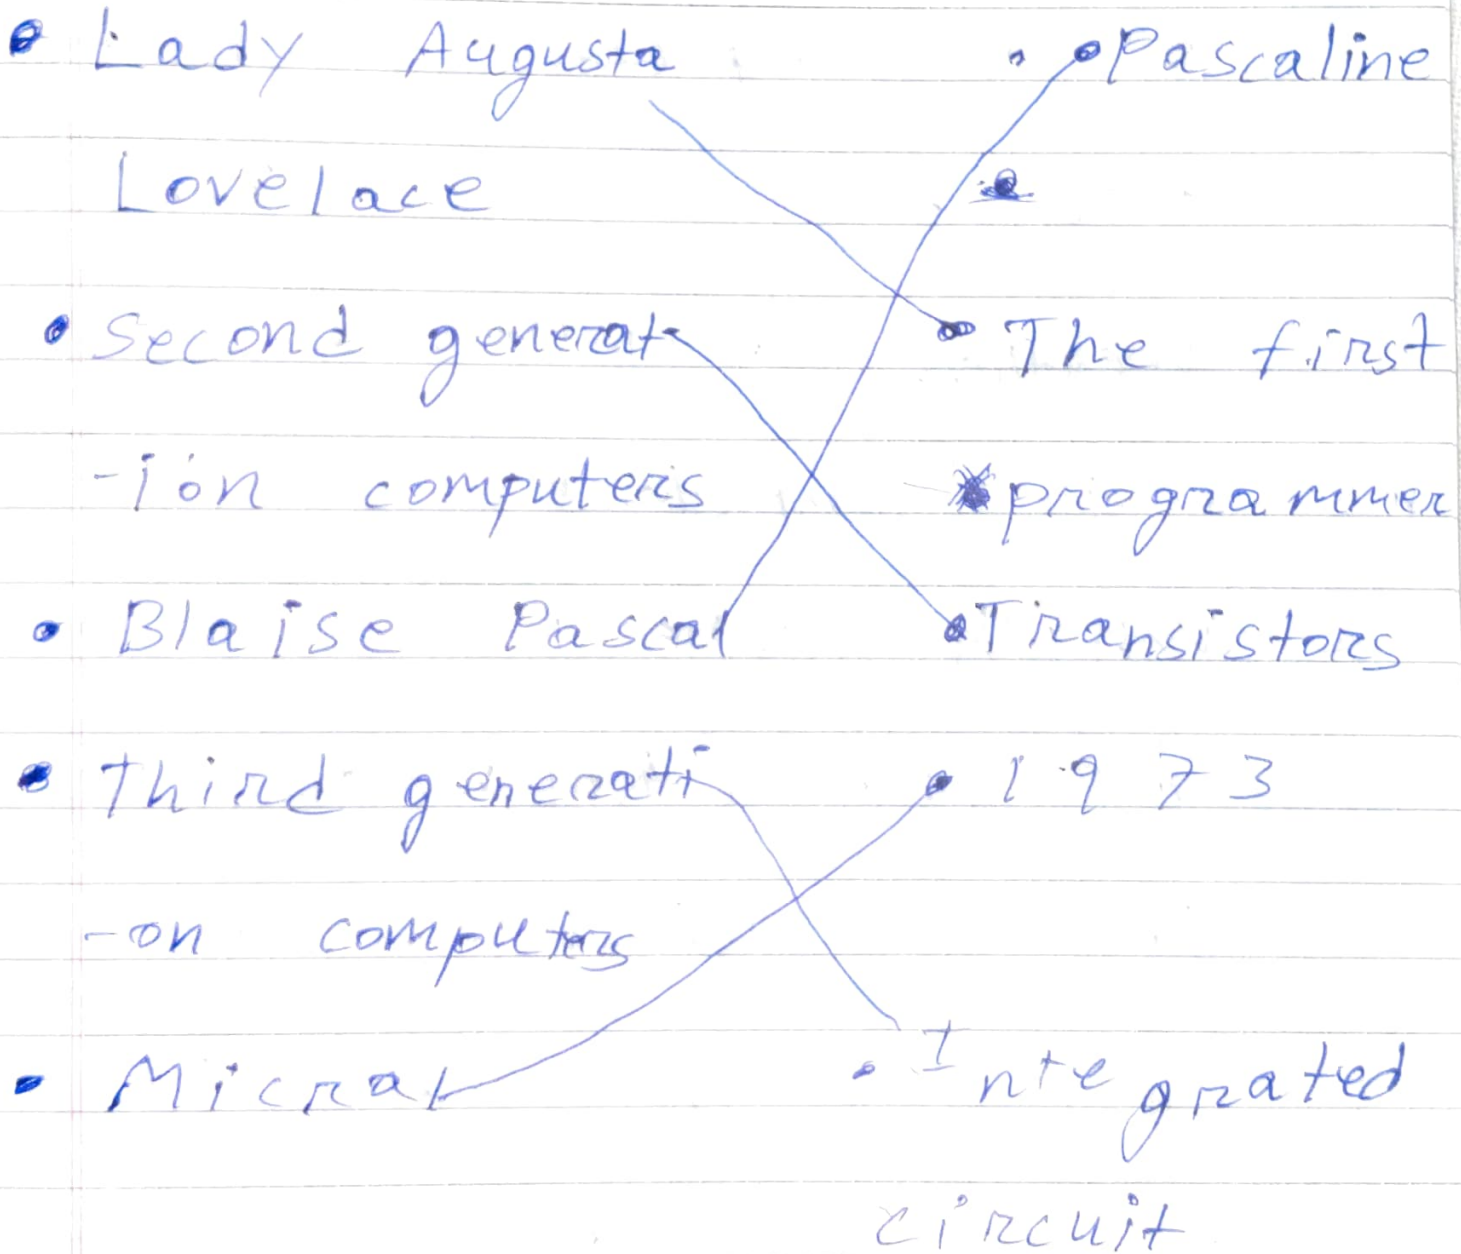 Lady Augusta
Lovelace
Second generat
-ion computers
Blaise Pascal
Third generati
-on computers
Micral
Pascaline
The first
programmer
Transistors
1973
Integrated
circuit